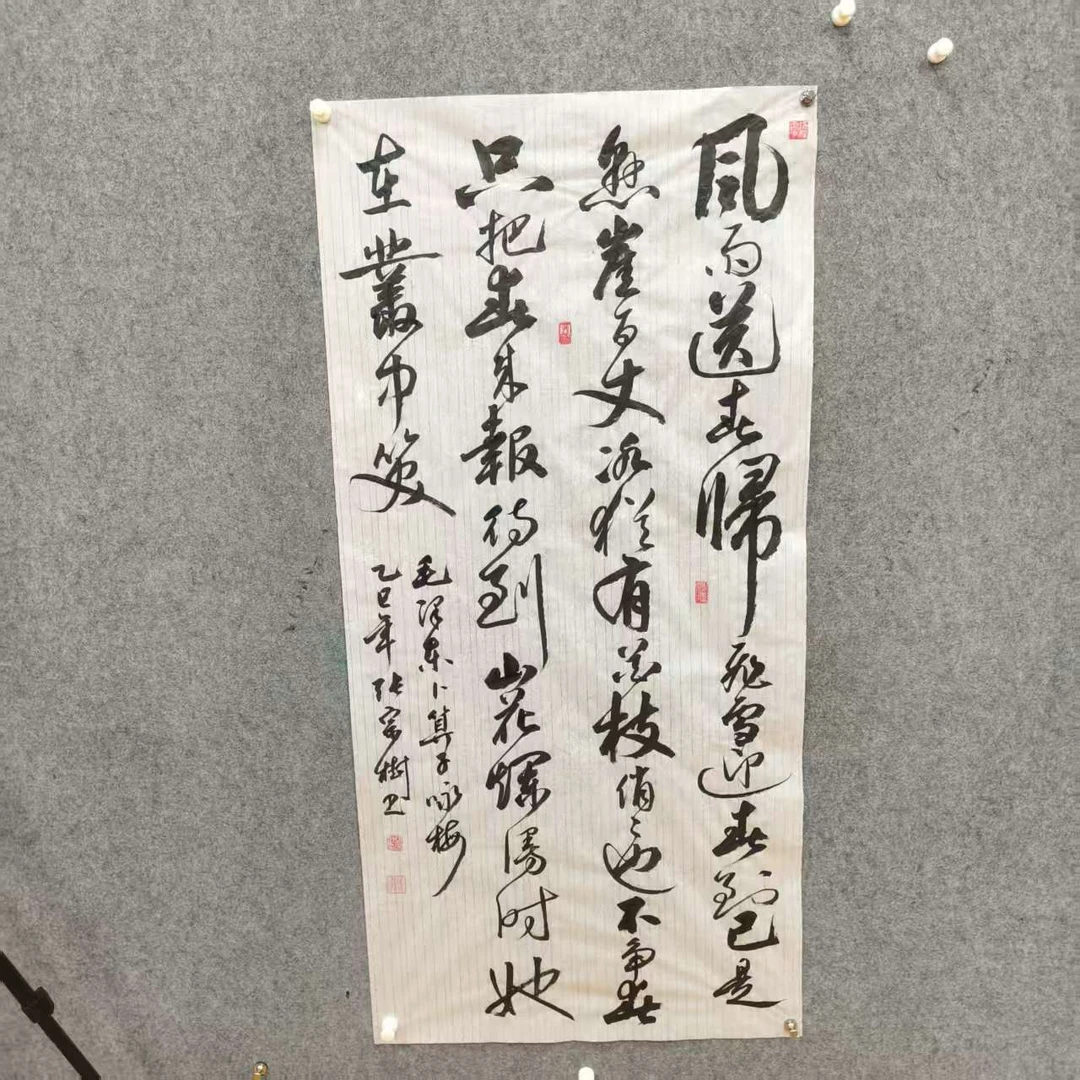 風雨送春歸飛雪迎春到已是
懸崖百丈冰猶有花枝俏俏也不争春
只把春来報待到山花爛漫时她
在叢中笑
毛泽东卜算子咏梅
乙巳年张宗樹书